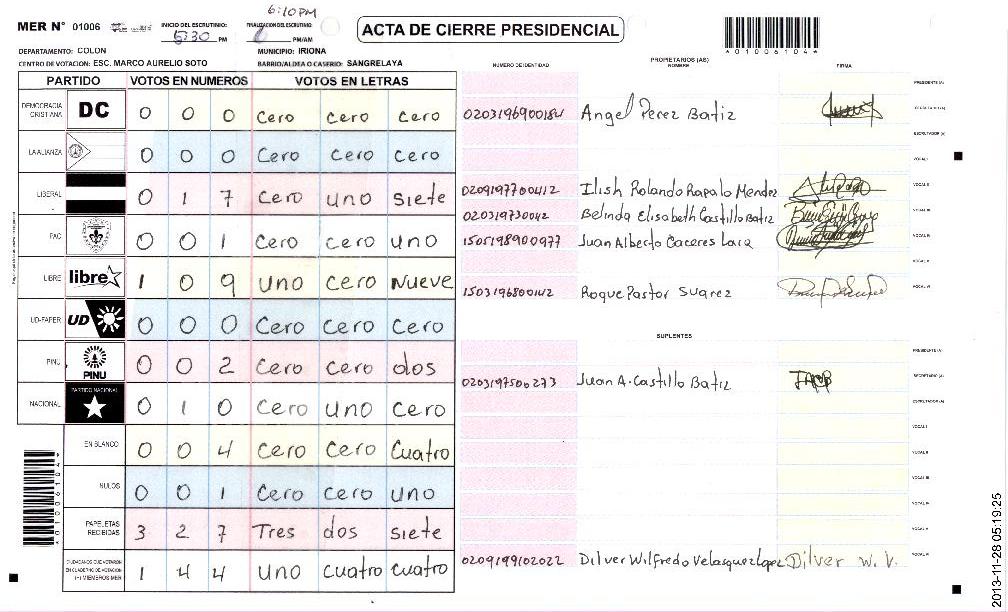 6:10PM
MER N° 01006 INICIO DEL ESCRUTINIO: 5:30 PM FINALIZACION DEL ESCRUTINIO: 6 PM/AM
ACTA DE CIERRE PRESIDENCIAL
*01006104*
DEPARTAMENTO: COLON MUNICIPIO: IRIONA
CENTRO DE VOTACION: ESC. MARCO AURELIO SOTO BARRIO/ALDEA O CASERIO: SANGRELAYA
PARTIDO VOTOS EN NUMEROS VOTOS EN LETRAS
DEMOCRACIA CRISTIANA DC 0 0 0 Cero cero cero
LA ALIANZA 0 0 0 Cero cero cero
LIBERAL 0 1 7 Cero uno siete
PAC 0 0 1 Cero cero uno
LIBRE libre 1 0 9 uno cero Nueve
UD-FAPER UD 0 0 0 Cero cero cero
PINU PINU 0 0 2 Cero cero dos
NACIONAL PARTIDO NACIONAL 0 1 0 Cero uno cero
EN BLANCO 0 0 4 Cero cero cuatro
NULOS 0 0 1 Cero cero uno
PAPELETAS RECIBIDAS 3 2 7 Tres dos siete
CIUDADANOS QUE VOTARON EN CUADERNO DE VOTACION (+) MIEMBROS MER 1 4 4 uno cuatro cuatro
*01006104*
NUMERO DE IDENTIDAD PROPIETARIOS (AS) NOMBRE FIRMA
PRESIDENTE (A)
0203196900184 Angel Perez Batiz SECRETARIO (A)
ESCRUTADOR (A)
VOCAL I
0209197700412 Ilish Rolando Rapalo Mendez VOCAL II
020319730042 Belinda Elisabeth Castillo Batiz VOCAL III
1505198900977 Juan Alberto Caceres Lara VOCAL IV
VOCAL V
1503196800142 Roque Pastor Suarez VOCAL VI
SUPLENTES
PRESIDENTE (A)
0203197500273 Juan A. Castillo Batiz JACB SECRETARIO (A)
ESCRUTADOR (A)
VOCAL I
VOCAL II
VOCAL III
VOCAL IV
VOCAL V
0209199102022 Dilver Wilfredo Velasquez Lopez Dilver W. V. VOCAL VI
2013-11-28 05:19:25